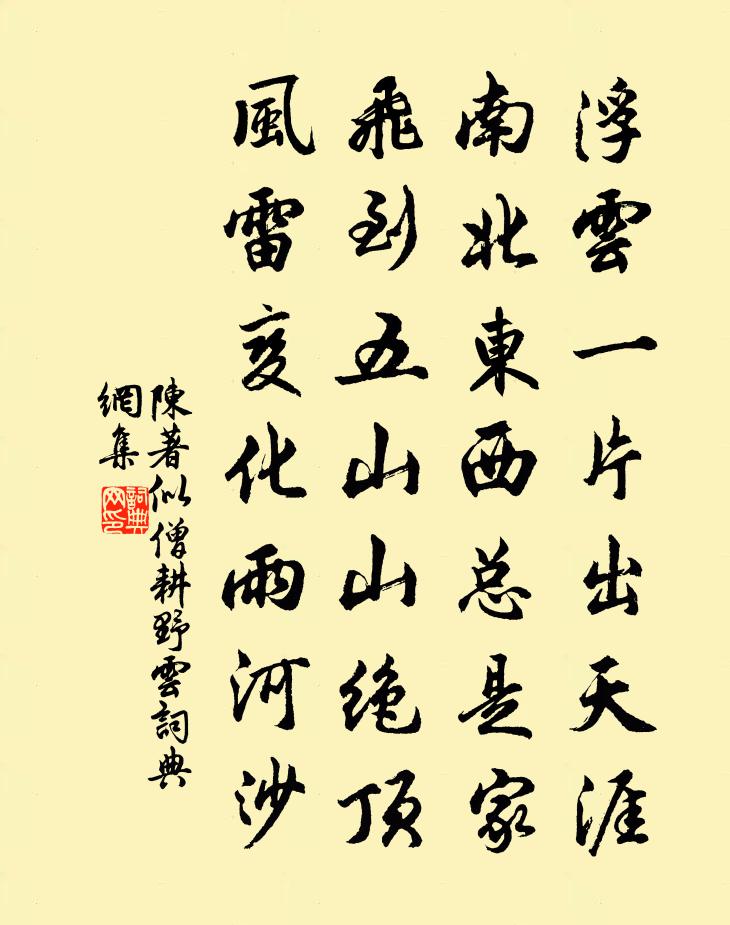 浮雲一片出天涯
南北東西总是家
飛到五山山绝顶
風雷变化雨河沙
陳著似僧耕野雲詞典
網集
詞典
网印